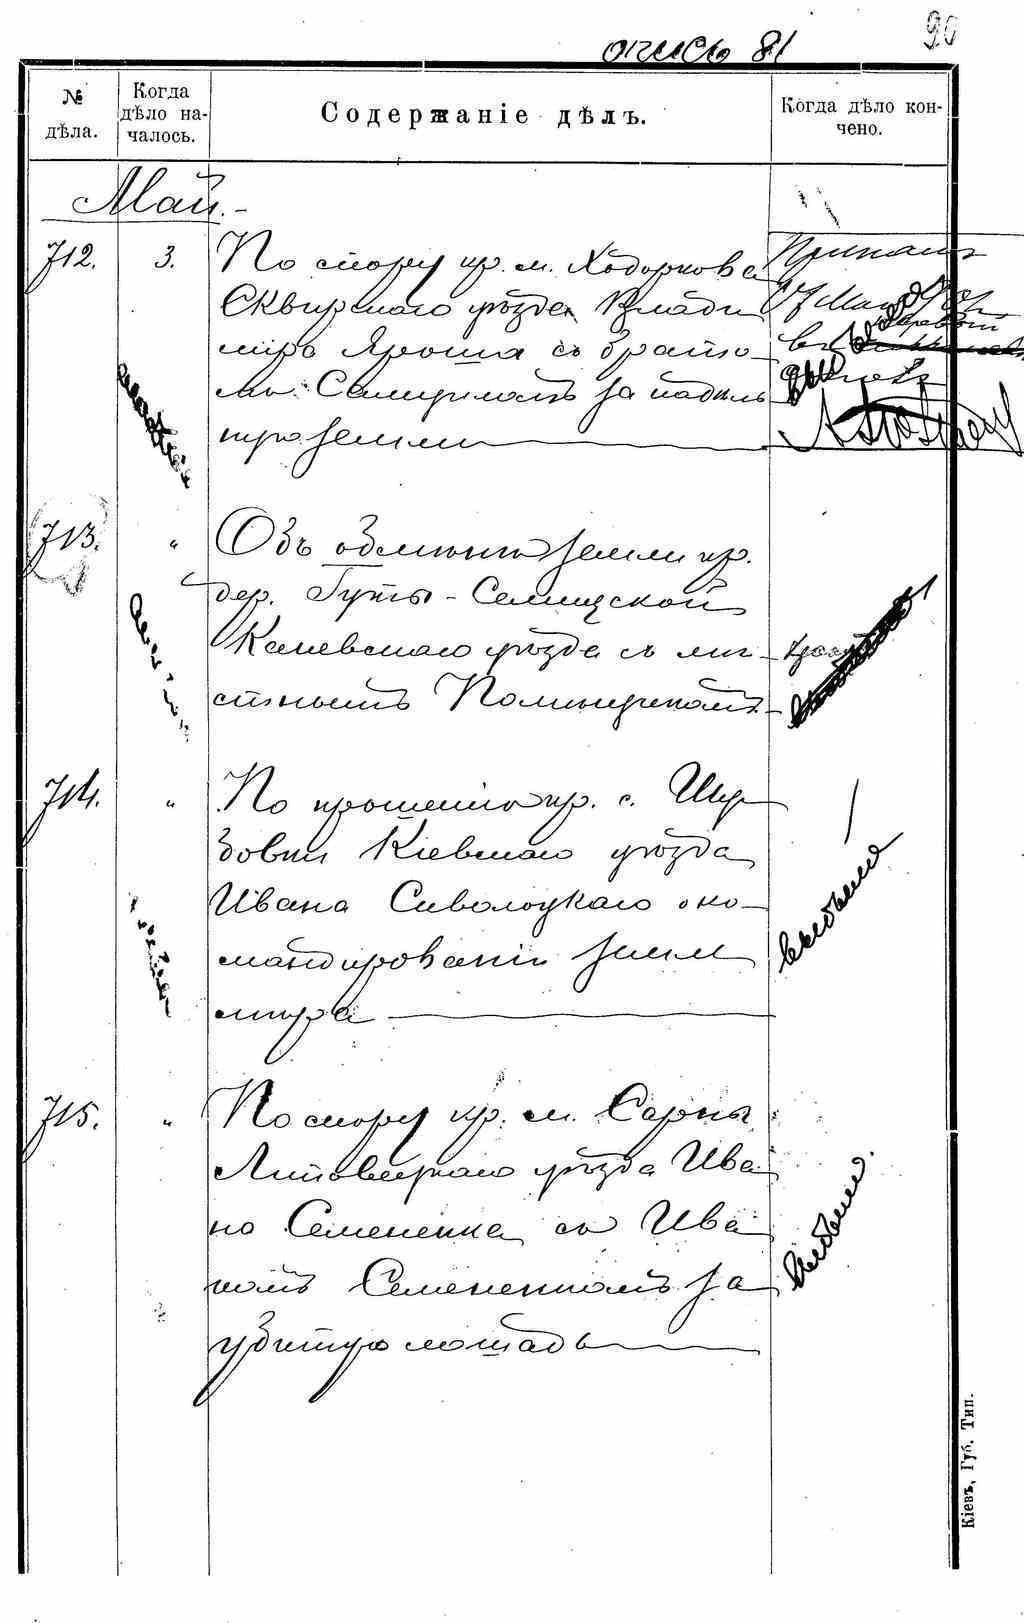 опись 81
90
№ дѣла.
Когда дѣло началось.
Содержаніе дѣлъ.
Когда дѣло кончено.
Май.
712.
3.
По спору кр. м. Ходоркова
Сквирскаго уѣзда Влади
міра Яроша съ брато
мъ
за надѣлъ
ную землю
713.
"
Объ обмѣнѣ земли кр.
дер. Гуты-Семицской
Каневскаго уѣзда съ мѣ
стнымъ
714.
"
По прошенію кр. с.
бовки Кіевскаго уѣзда
Ивана Сиволоцкаго о ко
мандированіи земле
мѣра
выбыло
715.
"
По спору кр. м. Сарны
Липовецкаго уѣзда Ива
на Семененка съ Ива
номъ Семененкомъ за
убитую лошадь
выбыло
Кіевъ, Губ. Тип.